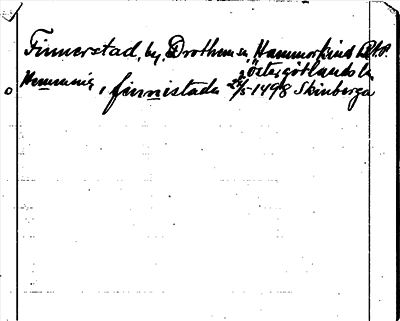 Finnerstad, by, Drothems sn, Hammarkinds hd.
Östergötlands län
Hemming, finnistada 25/5 1498 Skänberga